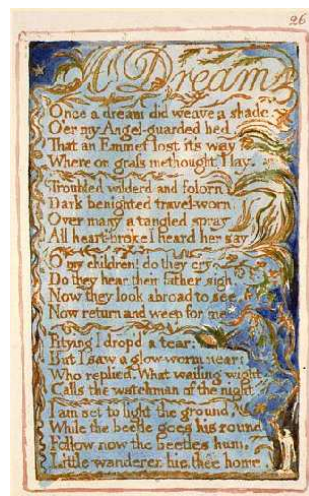 26
A Dream
Once a dream did weave a shade,
O'er my Angel-guarded bed,
That an Emmet lost its way
Where on grass methought I lay.
Troubled wilderd and folorn
Dark benighted travel-worn
Over many a tangled spray
All heart-broke I heard her say.
O my children! do they cry,
Do they hear their father sigh.
Now they look abroad to see,
Now return and weep for me.
Pitying I dropd a tear:
But I saw a glow-worm near:
Who replied. What wailing wight
Calls the watchman of the night.
I am set to light the ground,
While the beetle goes his round
Follow now the beetles hum,
Little wanderer hie thee home.